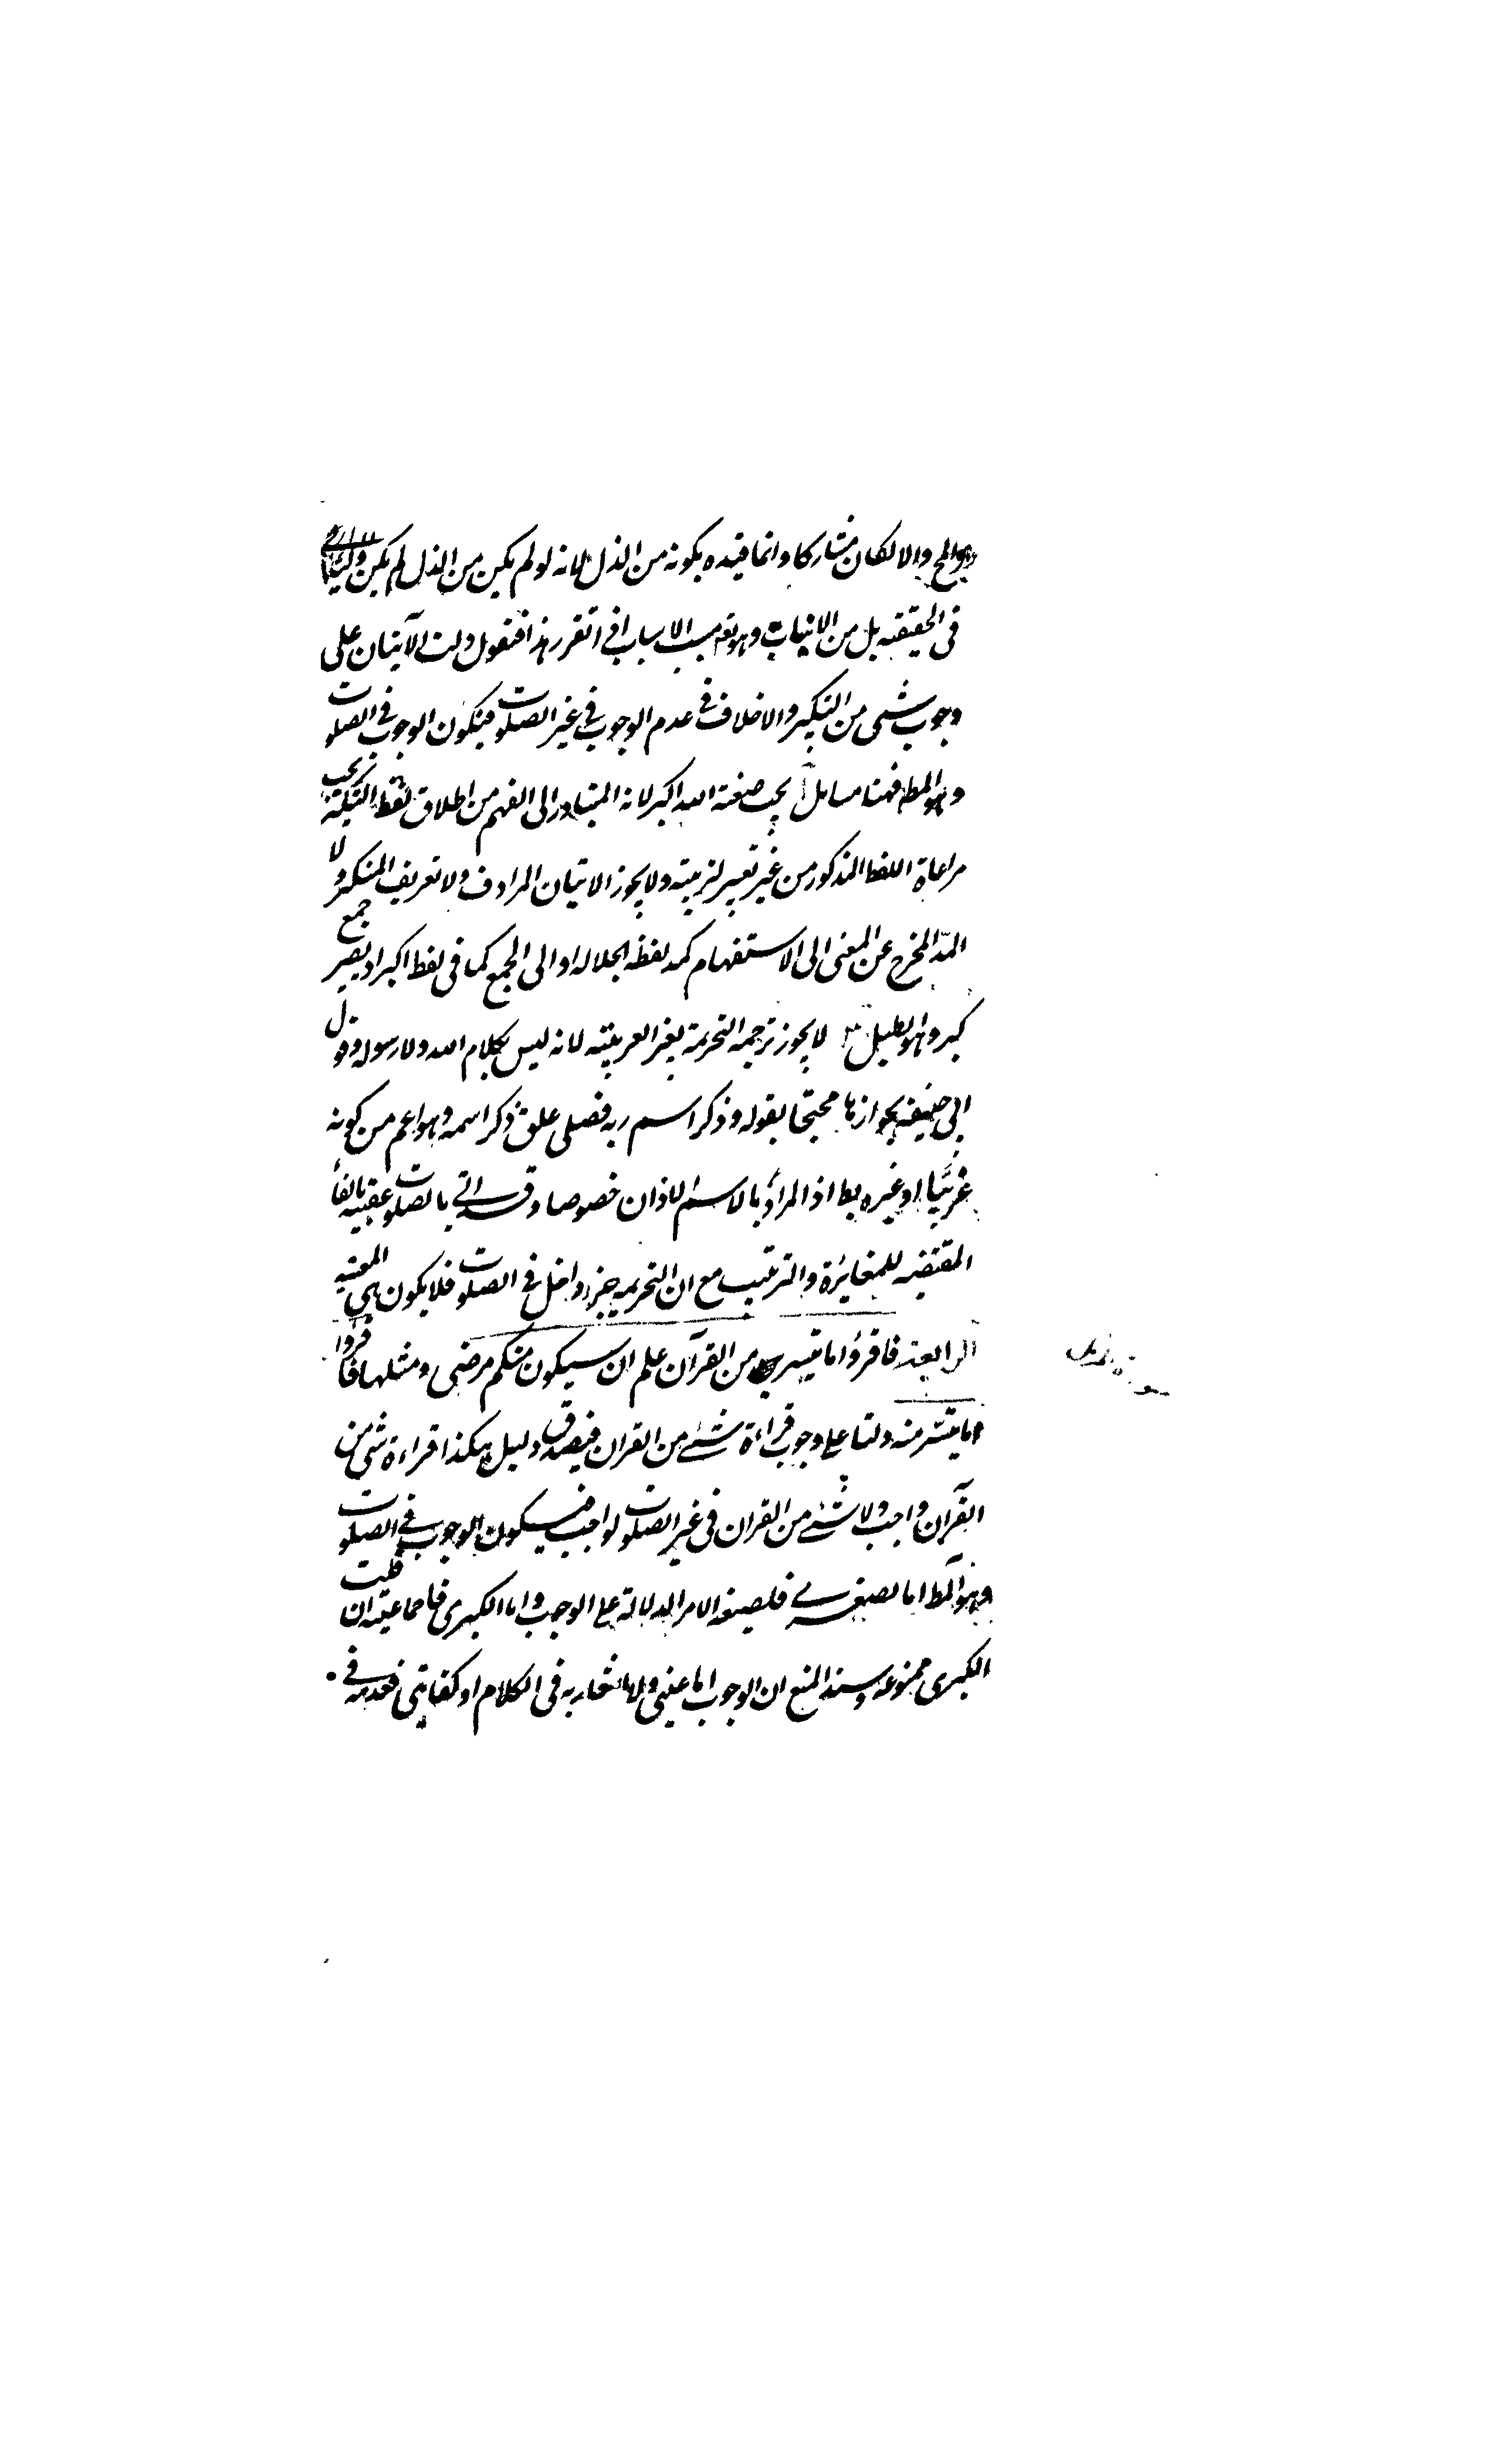 والالكان مشاركا وانما قيده بكونه من الذل لانه لو لم يكن من الذل لم يكن وليا
فى الحقيقيه بل من الانيات وهو تعم مسبب الاسباب اذا تقرر هذا فنقول دلت الآيتان على
وجوب شىء من التكبير والاخلاف فى عدم الوجوب فى غير الصلوت فيكون الوجوب فى الصلوت
وهو المط فهنا مسايل آ يجب صيغة الله اكبر لانه المتبادر الى الفهم من اطلاق لفظ التكبير يجب
مراعاة اللفظ المذكور من غير تغيير لتربيته ولا يجوز الاتيان المرادف ولا تعريف المنكر ولا
المدّ المخرج عن المعنى الى الاستفهام كمد لفظه الجلاله او الى الجمع كما فى لفظ اكبر اذ يصير جمع
كبر وهو الطبل لا يجوز ترجمه التحريمة بغير العربيته لانه ليس بكلام الله ولا رسوله وقول
ابى حنيفه بجوازها محتجا بقوله وذكر اسم ربه فصلى علق ذكر اسمه وهو اعم من كونه
عربيّا او غيره بط اذ المراد بالاسم الاذان خصوصا وقد اتى بالصلوت عقيبه بالفا
المقتضيه للمغايرة والترتيب مع ان التحريمه جزء داخل فى الصلوت فلا يكون هى المعنيه
الرابعة فاقرؤا ما تيسر من القرآن علم ان سيكون منكم مرضى ومثلها فاقرؤا
ما تيسّر منه دلتا على وجوب قراءة شئ من القران فيصدق دليل هكذا قراءة شئ من
القرآن واجب ولا شئ من القران فى غير الصلوت لواجب فيكون الوجوب فى الصلوت
وهو المط اما لصغرى فلصيغه الامر الدلالة على الوجوب واما الكبرى فاجماعية قلت ان
الكبرى ممنوعه وسند المنع ان الوجوب اما عينى ولا اشعار به فى الكلام او كفايتى فعدمه فى